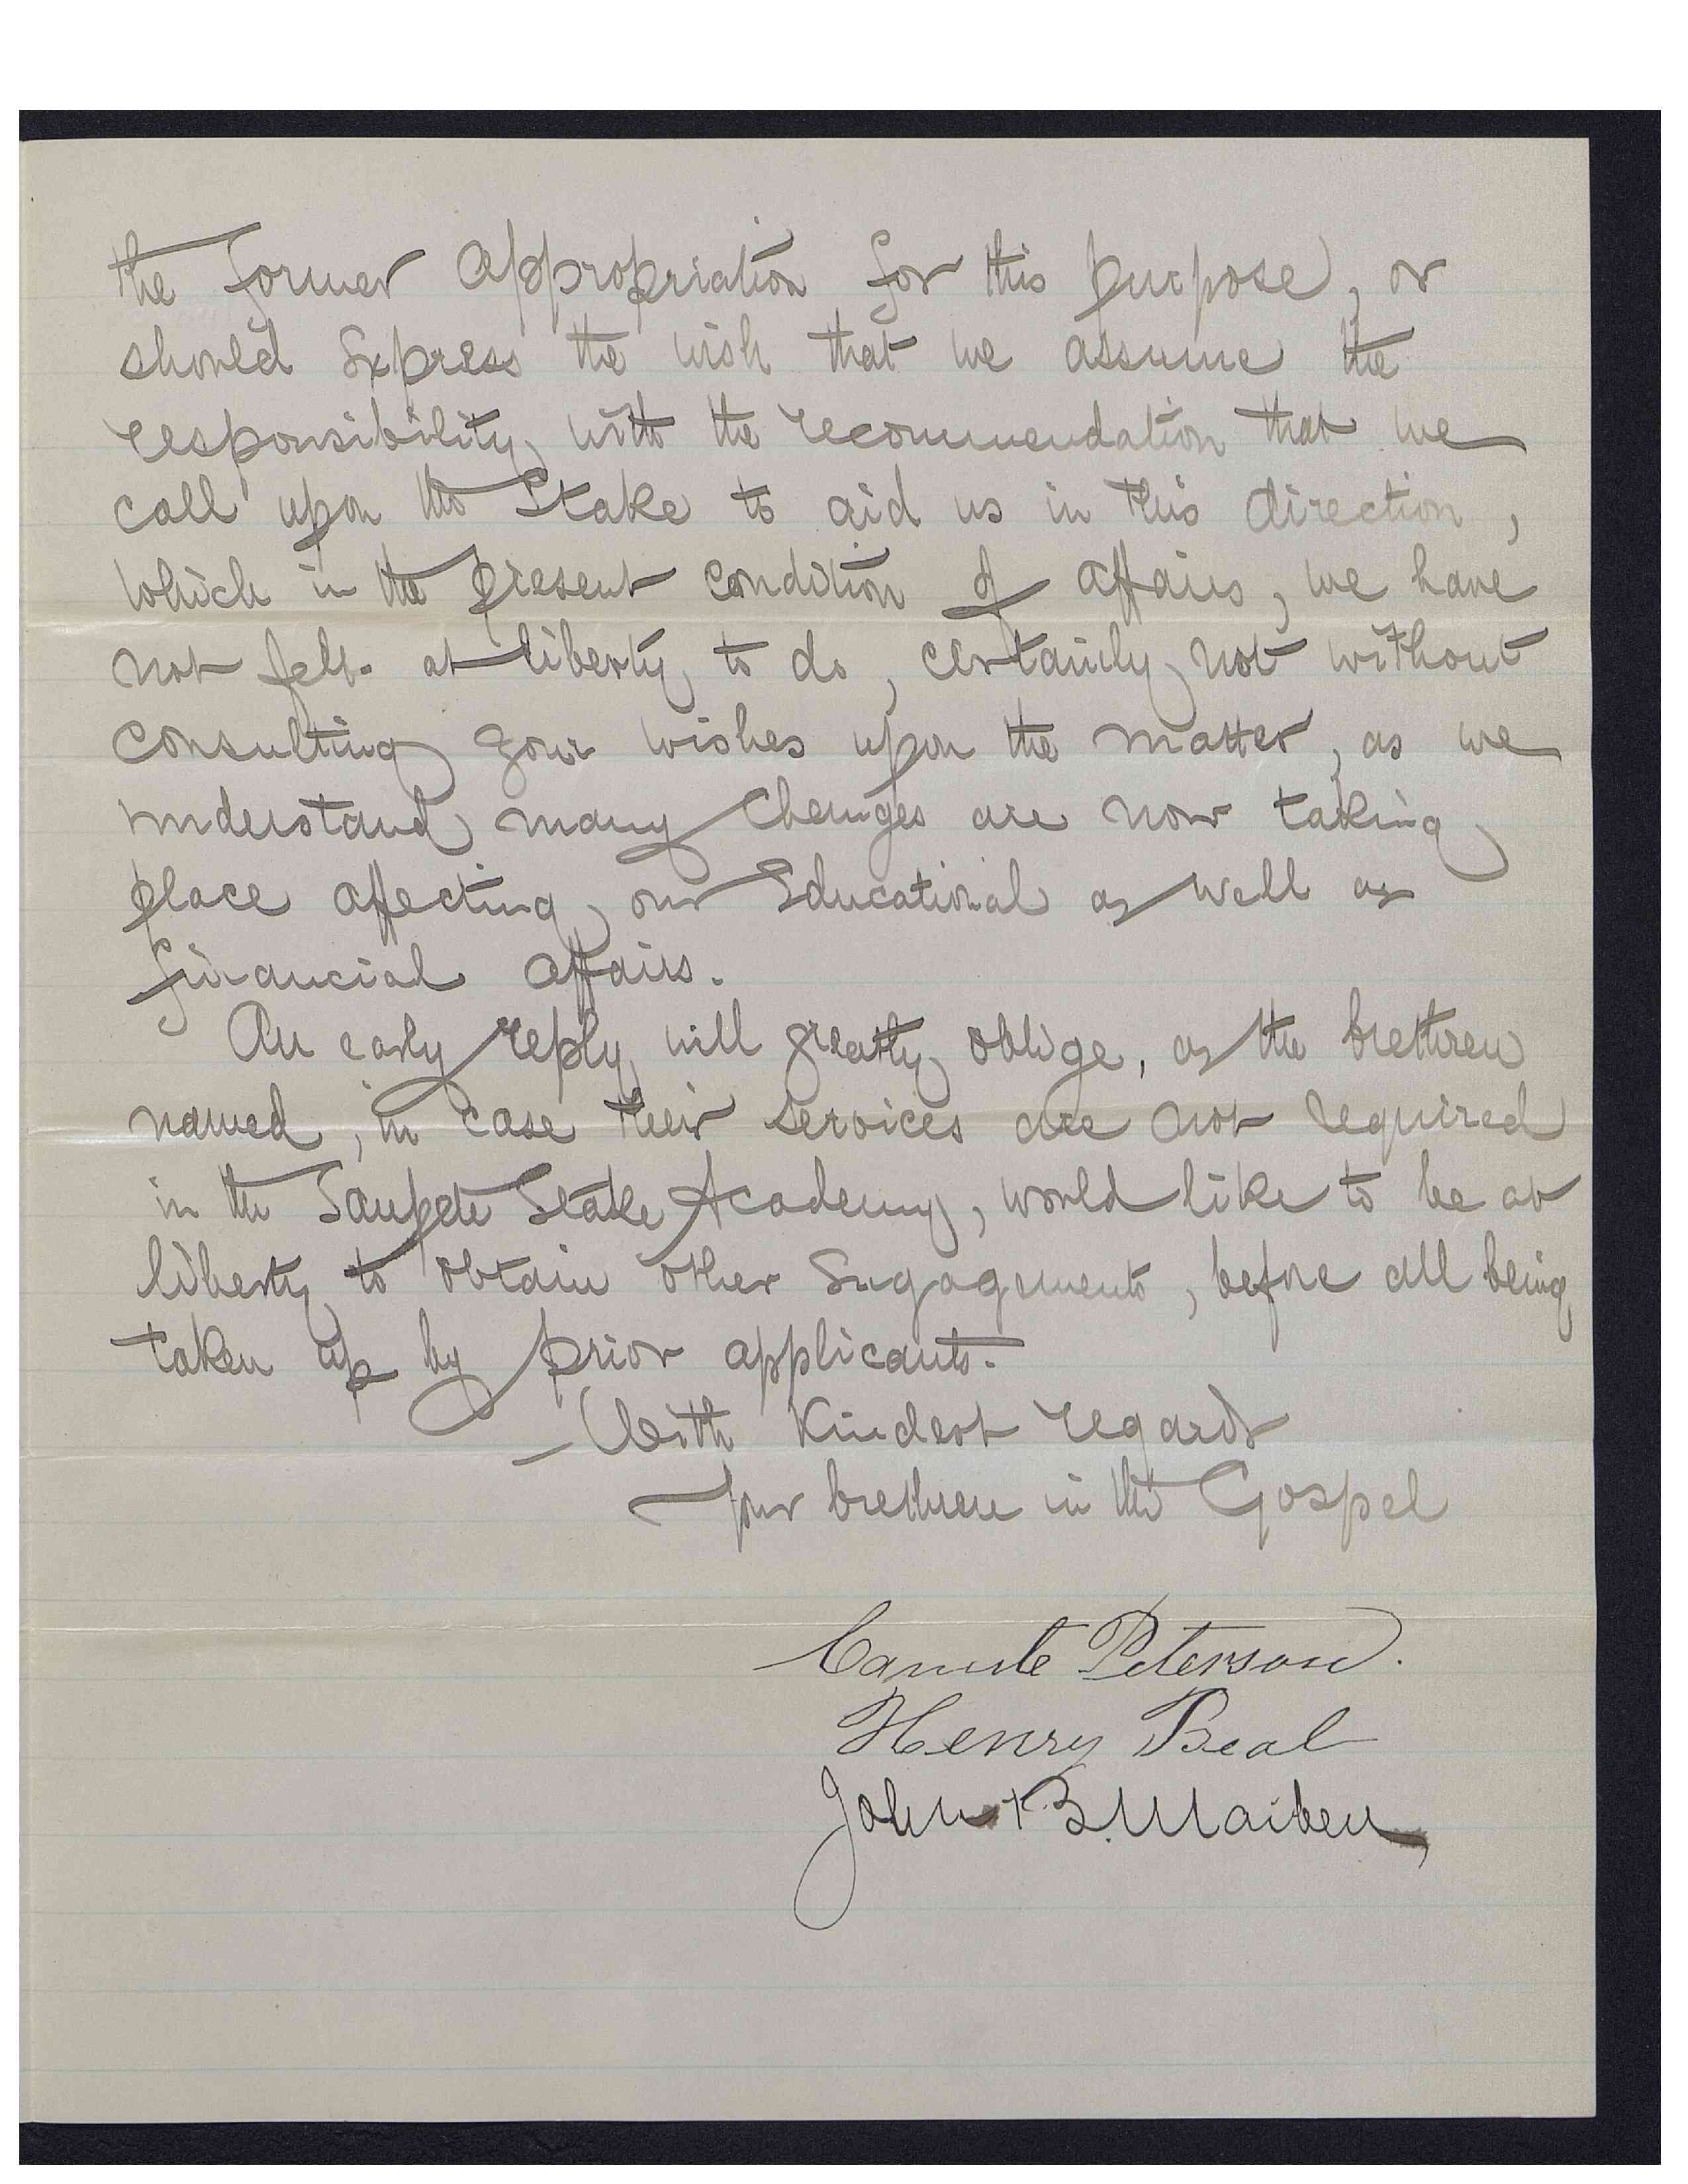 the former appropriation for this purpose, or
should Express the wish that we assume the
responsibility, with the recommendation that we
call upon the Stake to aid us in this direction,
which in the present condition of affairs, we have
not felt at liberty to do, certainly not without
consulting your wishes upon the matter, as we
understand many changes are now taking
place affecting our Educational as well as
financial affairs.
An early reply will greatly oblige, as the brethren
named, in case their services are not required
in the Sanpete Stake Academy, would like to be at
liberty to obtain other Engagements, before all being
taken up by prior applicants.
With Kindest regards
Your brethren in the Gospel
Canute Peterson.
Henry Beal
John B. Maiben